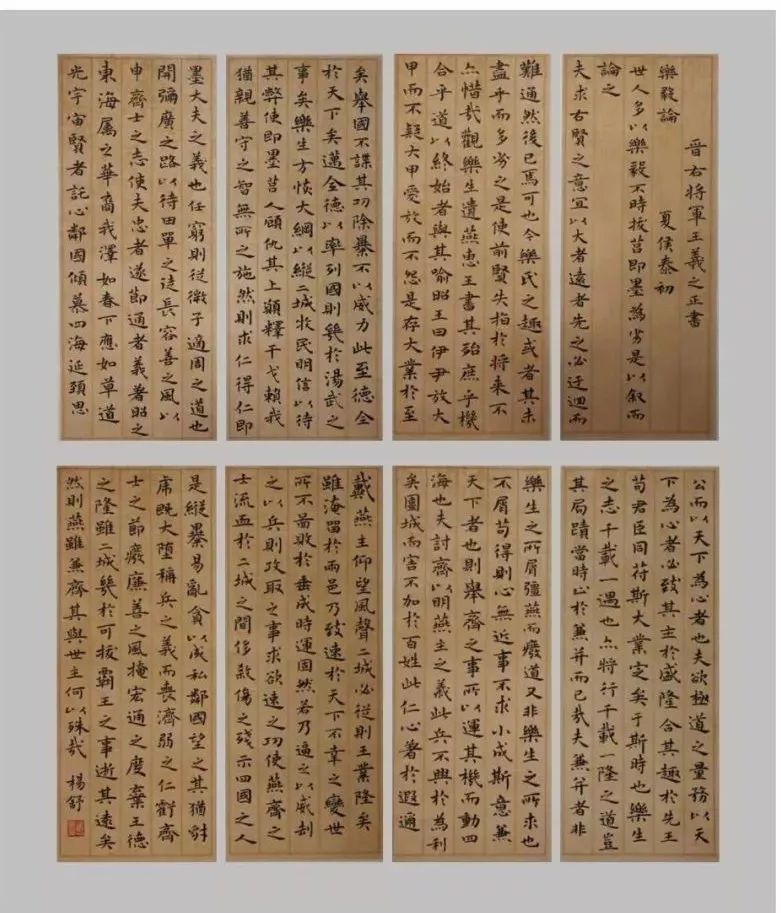 晋右將軍王羲之正書
樂毅論 夏侯泰初
世人多以樂毅不時拔莒即墨為劣是以叙而
論之
夫求古賢之意宜以大者遠者先之必迂迴而
難通然後已焉可也今樂氏之趣或者其未
盡乎而多劣之是使前賢失指於將来不
亦惜哉觀樂生遺燕惠王書其殆庶乎機
合乎道以終始者與其喻昭王曰伊尹放大
甲而不疑大甲受放而不怨是存大業於至
公而以天下為心者也夫欲極道之量務以天
下為心者必致其主於盛隆合其趣於先王
苟君臣同符斯大業定矣于斯時也樂生
之志千載一遇也亦將行千載一隆之道豈
其局蹟當時止於兼并而已哉夫兼并者非
樂生之所屑彊燕而廢道又非樂生之所求也
不屑苟得則心無近事不求小成斯意兼
天下者也則舉齊之事所以運其機而動四
海也夫討齊以明燕主之義此兵不興於為利
矣圍城而害不加於百姓此仁心著於遐邇
矣舉國不謀其功除暴不以威力此至德全
於天下矣邁全德以率列國則幾於湯武之
事矣樂生方恢大綱以縱二城牧民明信以待
其弊使即墨莒人顧仇其上願釋干戈賴我
猶親善守之智無所之施然則求仁得仁即
墨大夫之義也任窮則從微子適周之道也
開彌廣之路以待田單之徒長容善之風以
申齊士之志使夫忠者遂節通者義著昭之
東海屬之華裔我澤如春下應如草道
光宇宙賢者託心鄰國傾慕四海延頸思
戴燕主仰望風聲二城必從則王業隆矣
雖淹留於兩邑乃致速於天下不幸之變世
所不圖敗於垂成時運固然若乃逼之以威刦
之以兵則攻取之事求欲速之功使燕齊之
士流血於二城之間侈殺傷之殘示四國之人
是縱暴易亂貪以成私鄰國望之其猶豺
虎既大墮稱兵之義而喪濟弱之仁虧齊
士之節廢廉善之風掩宏通之度棄王德
之隆雖二城幾於可拔霸王之事逝其遠矣
然則燕雖兼齊其與世主何以殊哉 楊舒